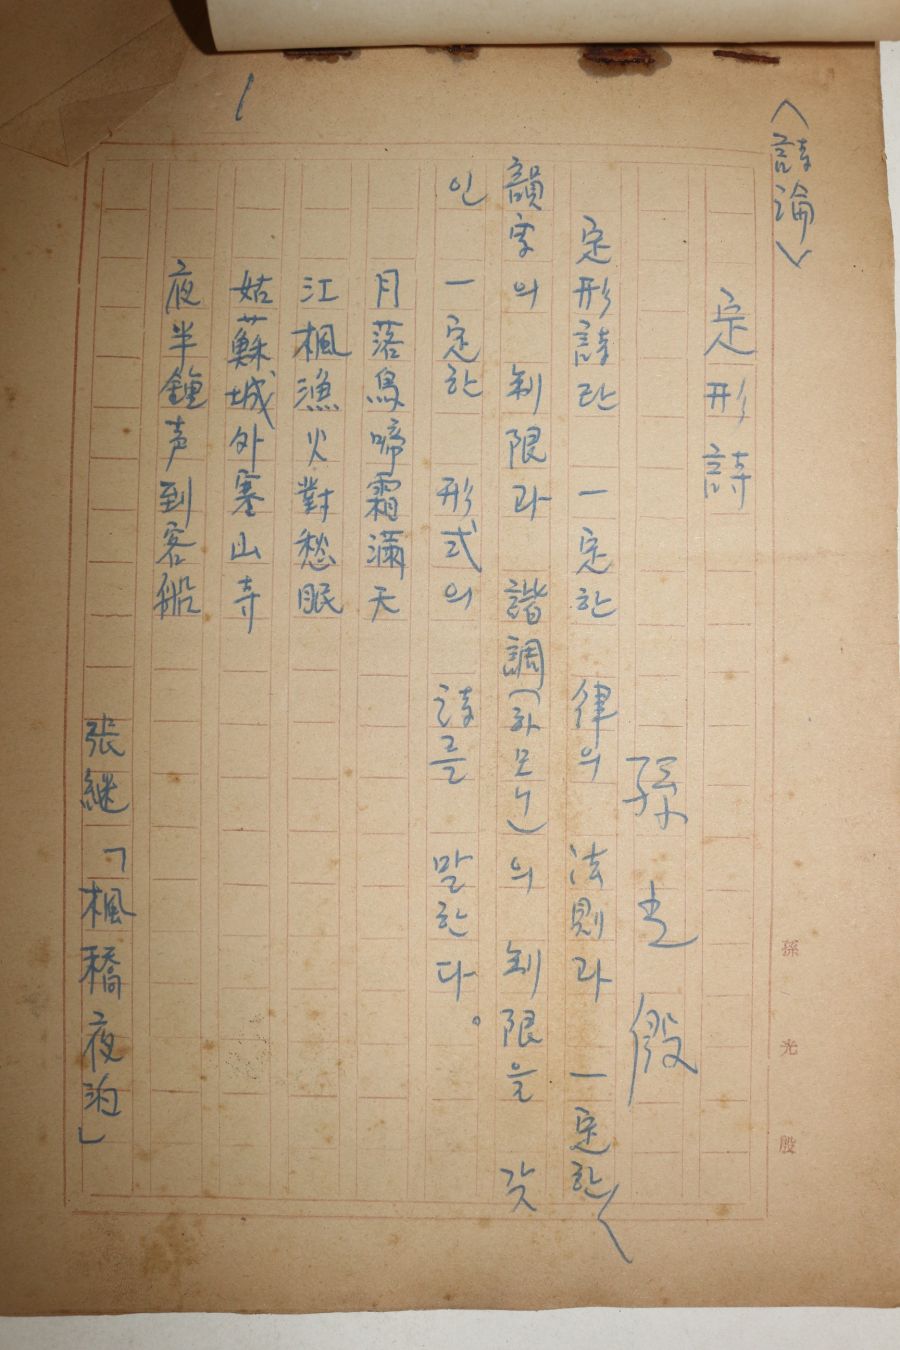 1
〈詩論〉
孫光殷
定形詩
孫光殷
定形詩란 一定한 律의 法則과 一定한
韻字의 制限과 諧調(하모니)의 制限을 갖
인 一定한 形式의 詩를 말한다。
月落烏啼霜滿天
江楓漁火對愁眠
姑蘇城外寒山寺
夜半鐘声到客船
張継「楓橋夜泊」